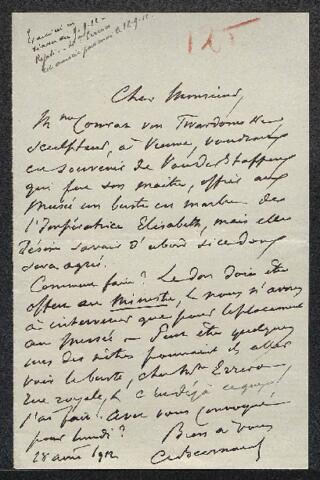 Examiné en
séance du 9-9-12
125
Cher Monsieur,
Mme Conrat von Twardowska
sculpteur, à Vienne, voudrait
en souvenir de Van der Stappen
qui fut son maître, offrir au
musée un buste en marbre de
l'Impératrice Elisabeth, mais elle
désire savoir d'abord si ce don
sera agréé.
Comment faire? Le don doit être
offert au ministre, & nous n'avons
à intervenir que pour le placement
au musée — Peut être quelques
uns des nôtres pourraient ils aller
voir le buste, chez Mr Errera
rue royale, & c'est déjà ce que
j'ai fait. Avez vous convoqué
pour lundi?
Bien à vous
28 août 1912